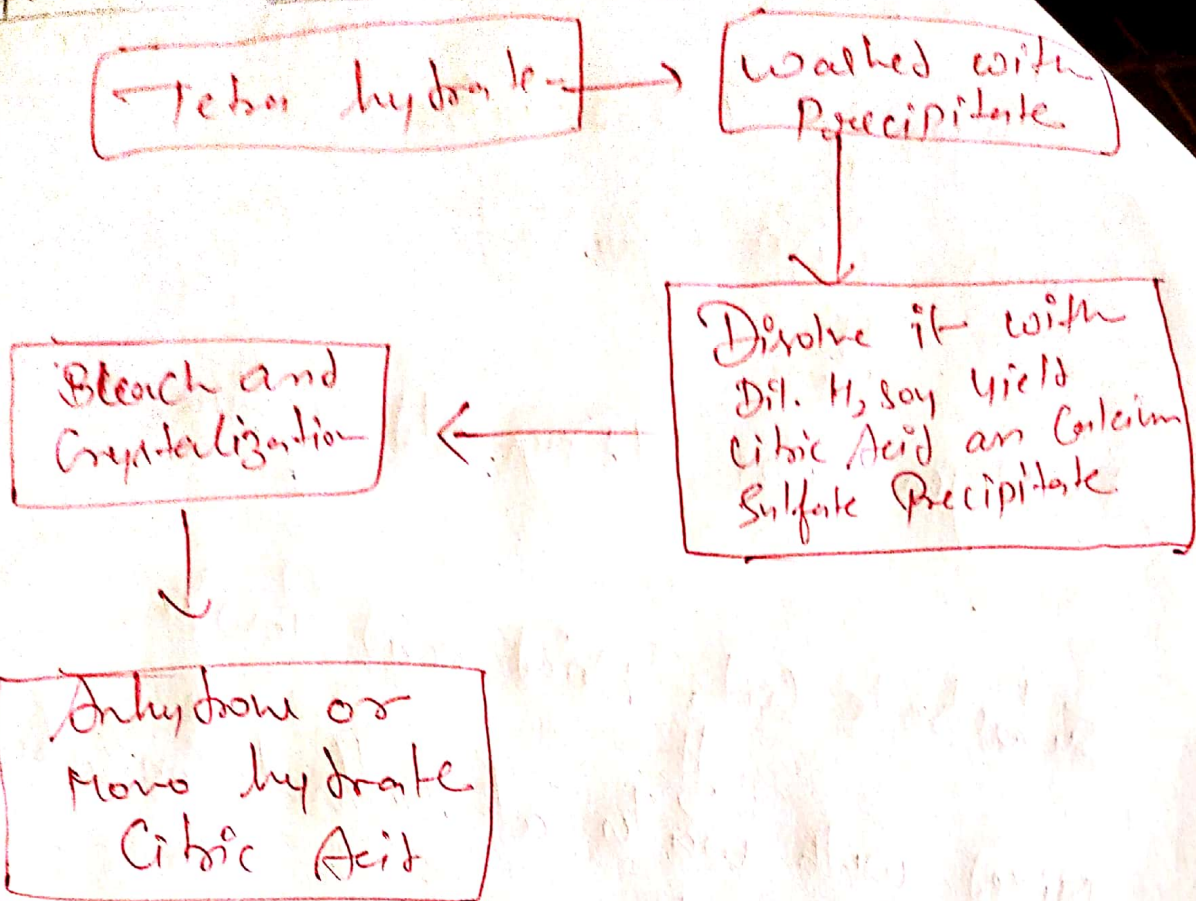 Tetra hydrate
Washed with
Precipitate
Disolve it with
Dil. H2SO4 yield
Citric Acid an Calcium
Sulfate Precipitate
Bleach and
Crystalization
Anhydrous or
Mono hydrate
Citric Acid